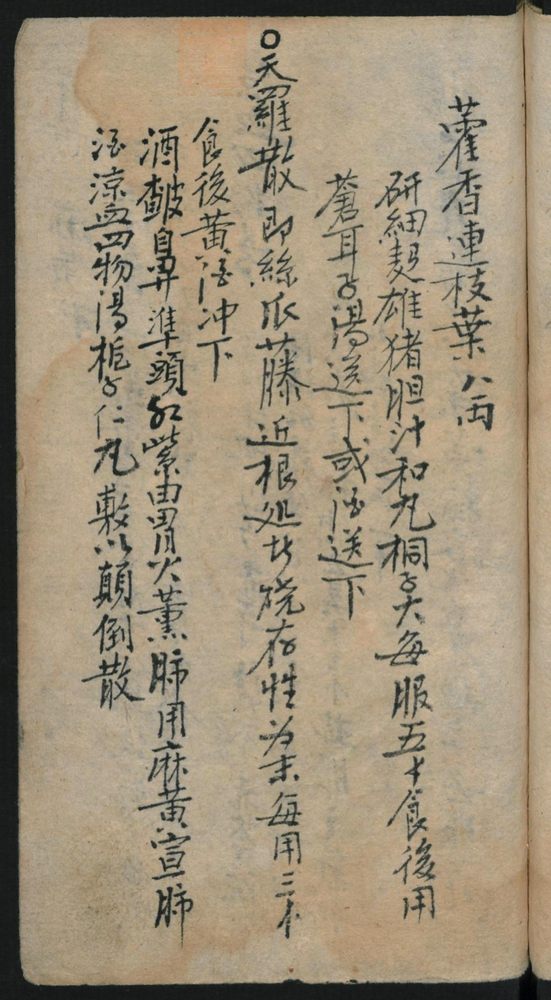 藿香連枝葉八両
研細麪雄猪胆汁和丸桐子大每服五十食後用
蒼耳子湯送下或酒送下
○天羅散即絲瓜藤近根处燒存性为末每用三个
食後黄酒冲下
酒皶鼻準頭紅紫由胃火薰肺用麻黄宣肺
酒涼血四物湯栀子仁丸敷以顛倒散